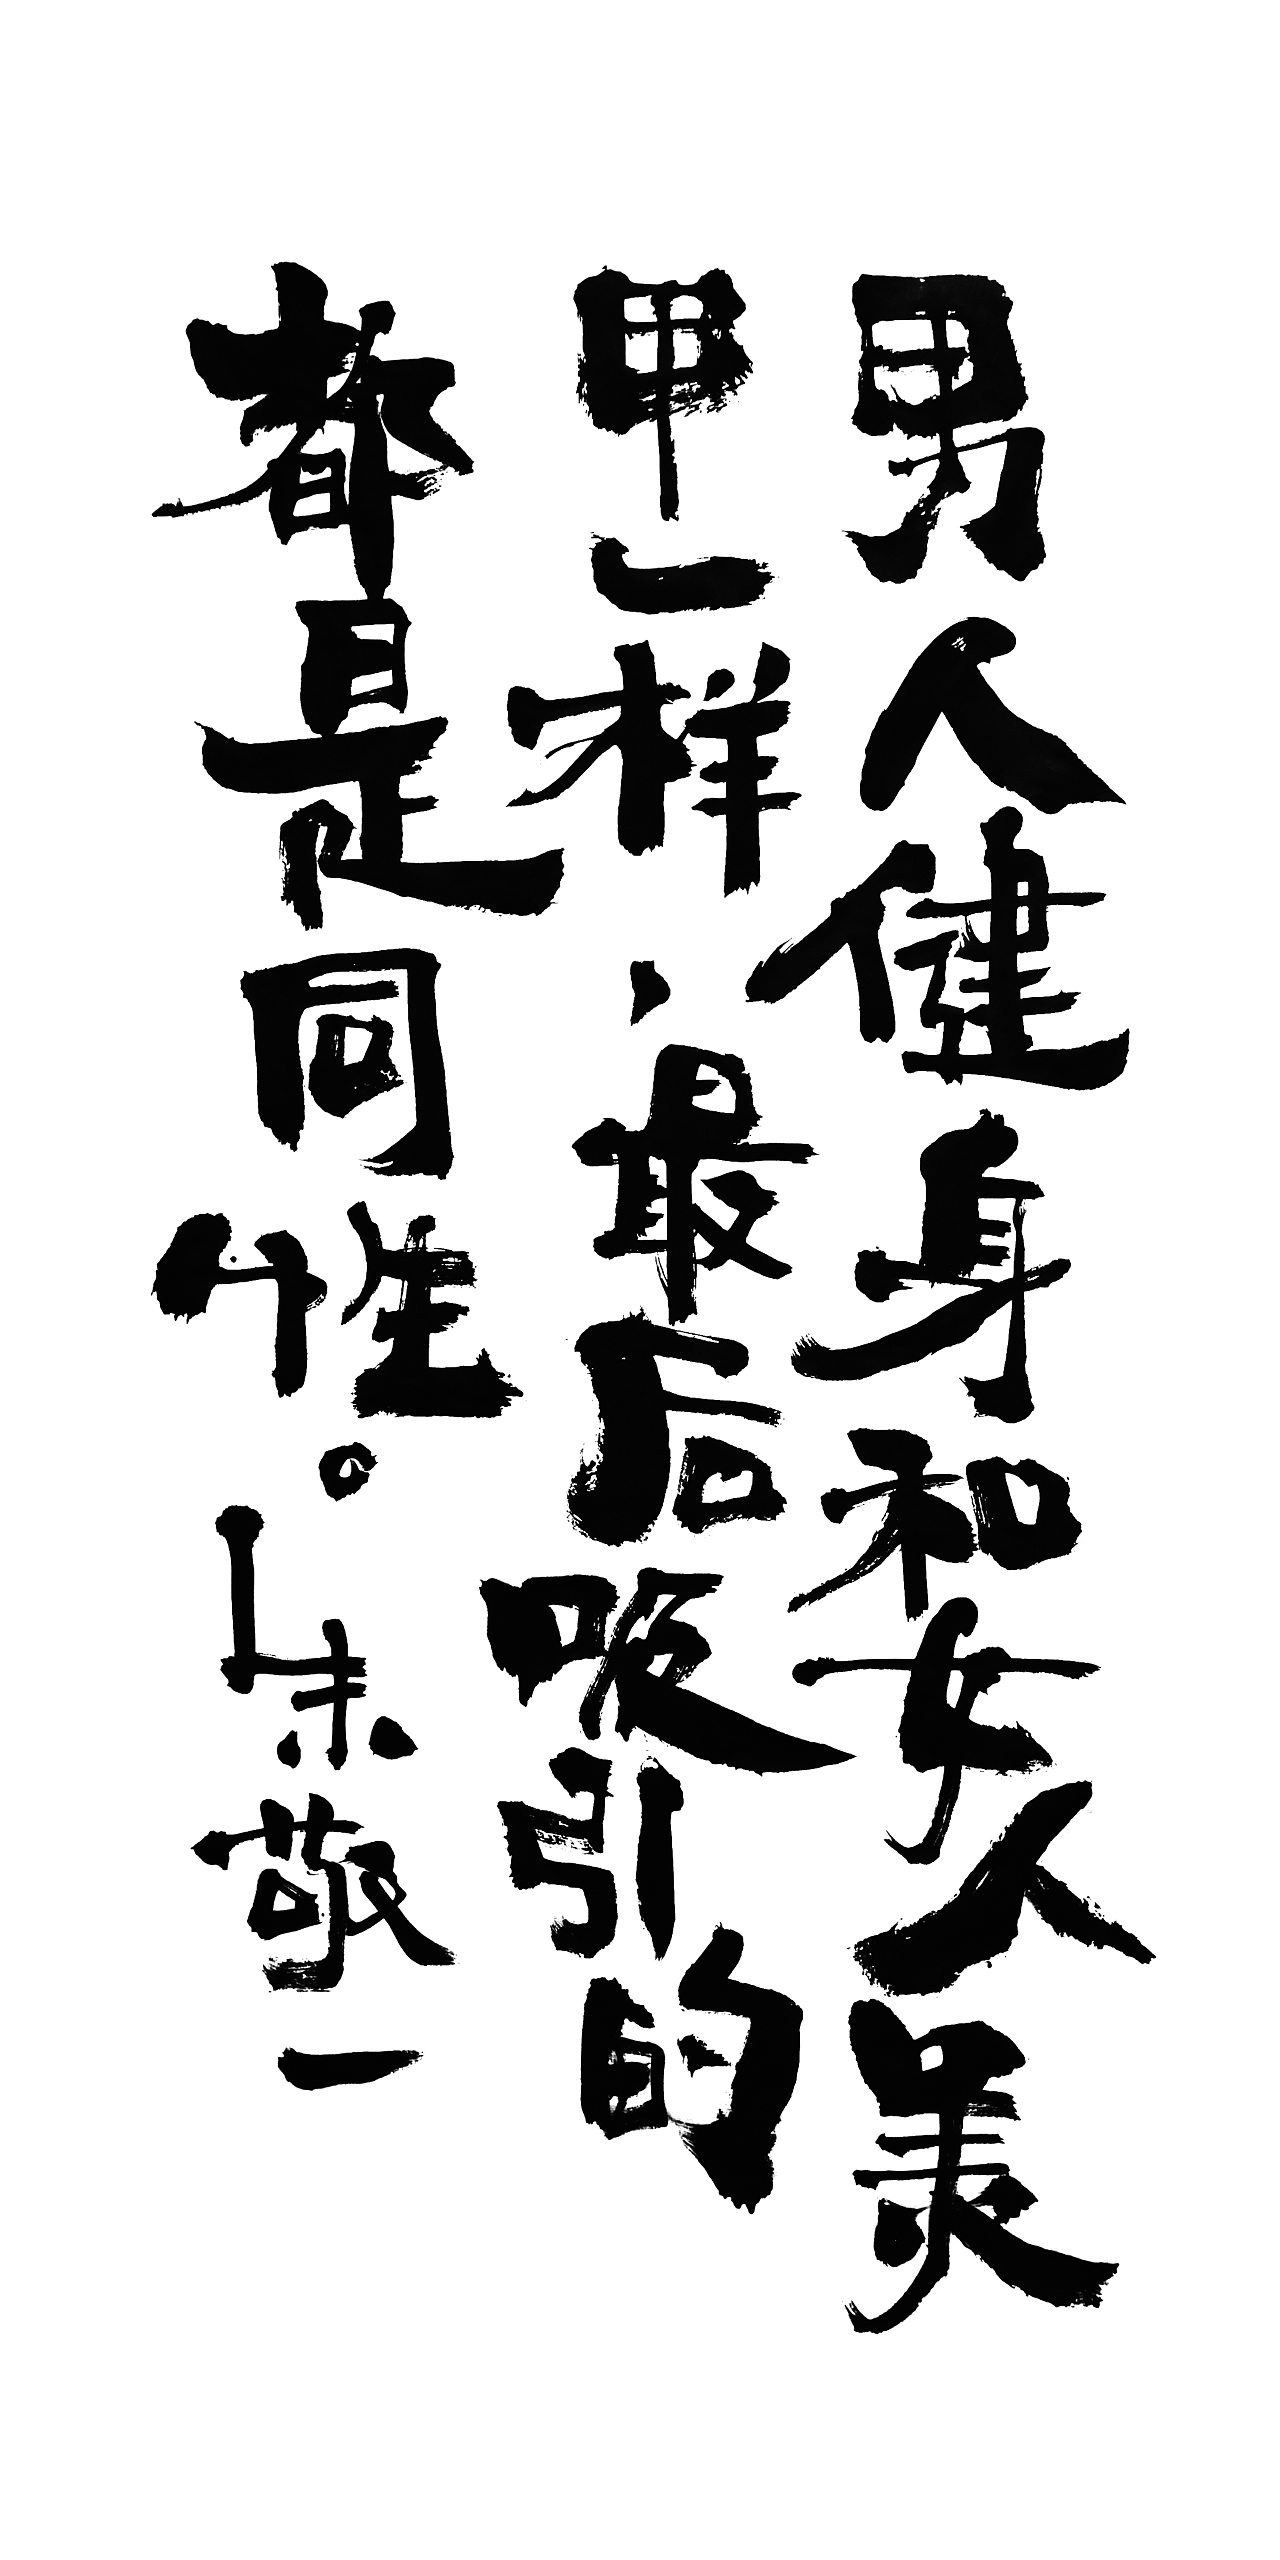 男人健身和女人美
甲一样，最后吸引的
都是同性。朱敬一